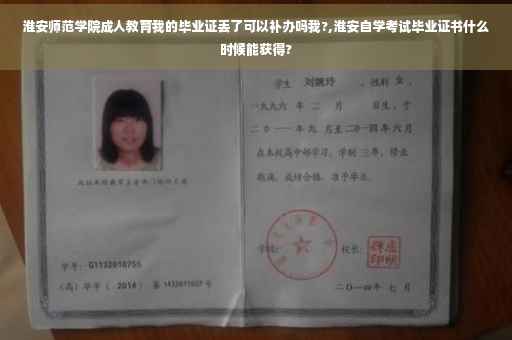 淮安师范学院成人教育我的毕业证丢了可以补办吗我?,淮安自学考试毕业证书什么
时候能获得?
学生 刘婉玲 ，性别 女 ，
一九九六 年 二 月 日生，于
二〇一一年九 月至二〇一四年六月
在本校高中部学习，学制 三年，修业
期满，成绩合格，准予毕业。
学校： 校长：
学号： G1132010755
（高）毕字（ 2014 ）第 1432011027 号
二〇一四年 七 月